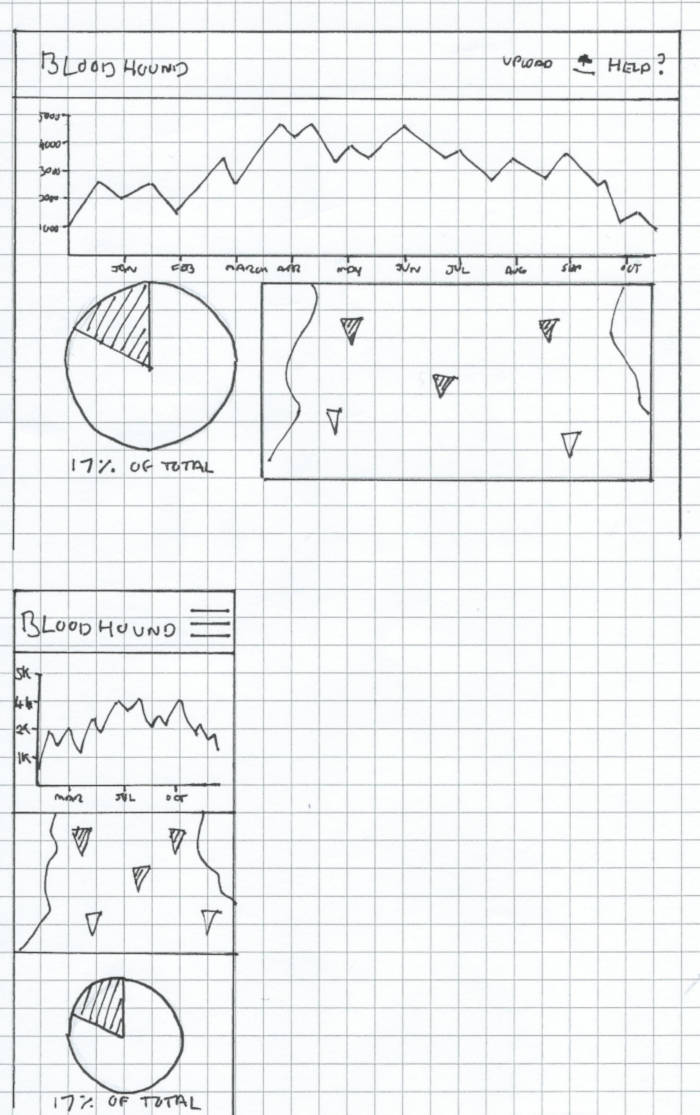 BLOODHOUND UPLOAD HELP?
5000
4000
3000
2000
1000
JAN FEB MARCH APR MAY JUN JUL AUG SEP OCT
17% OF TOTAL
BLOODHOUND
5K
4K
2K
1K
MAR JUL OCT
17% OF TOTAL